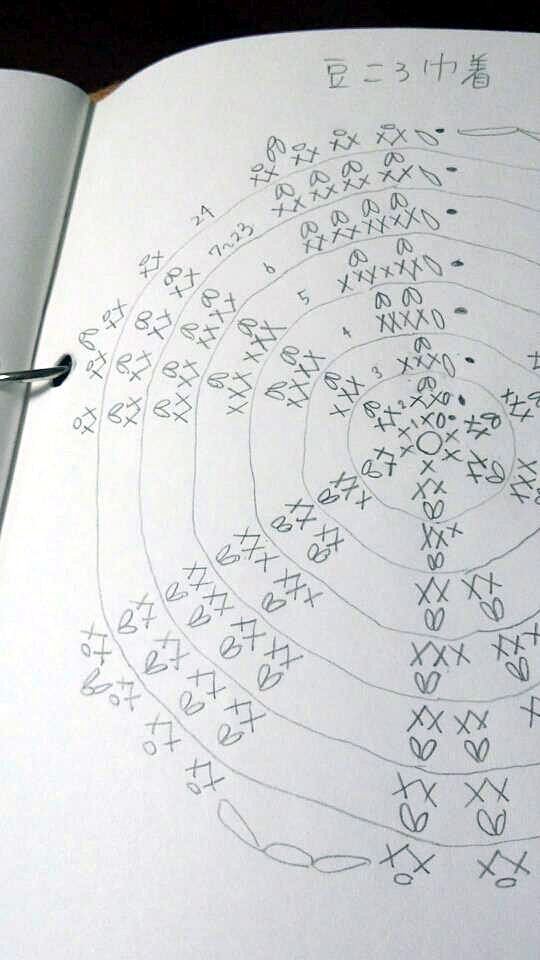 豆ころ巾着
24
7~23
6
5
4
3
2
1